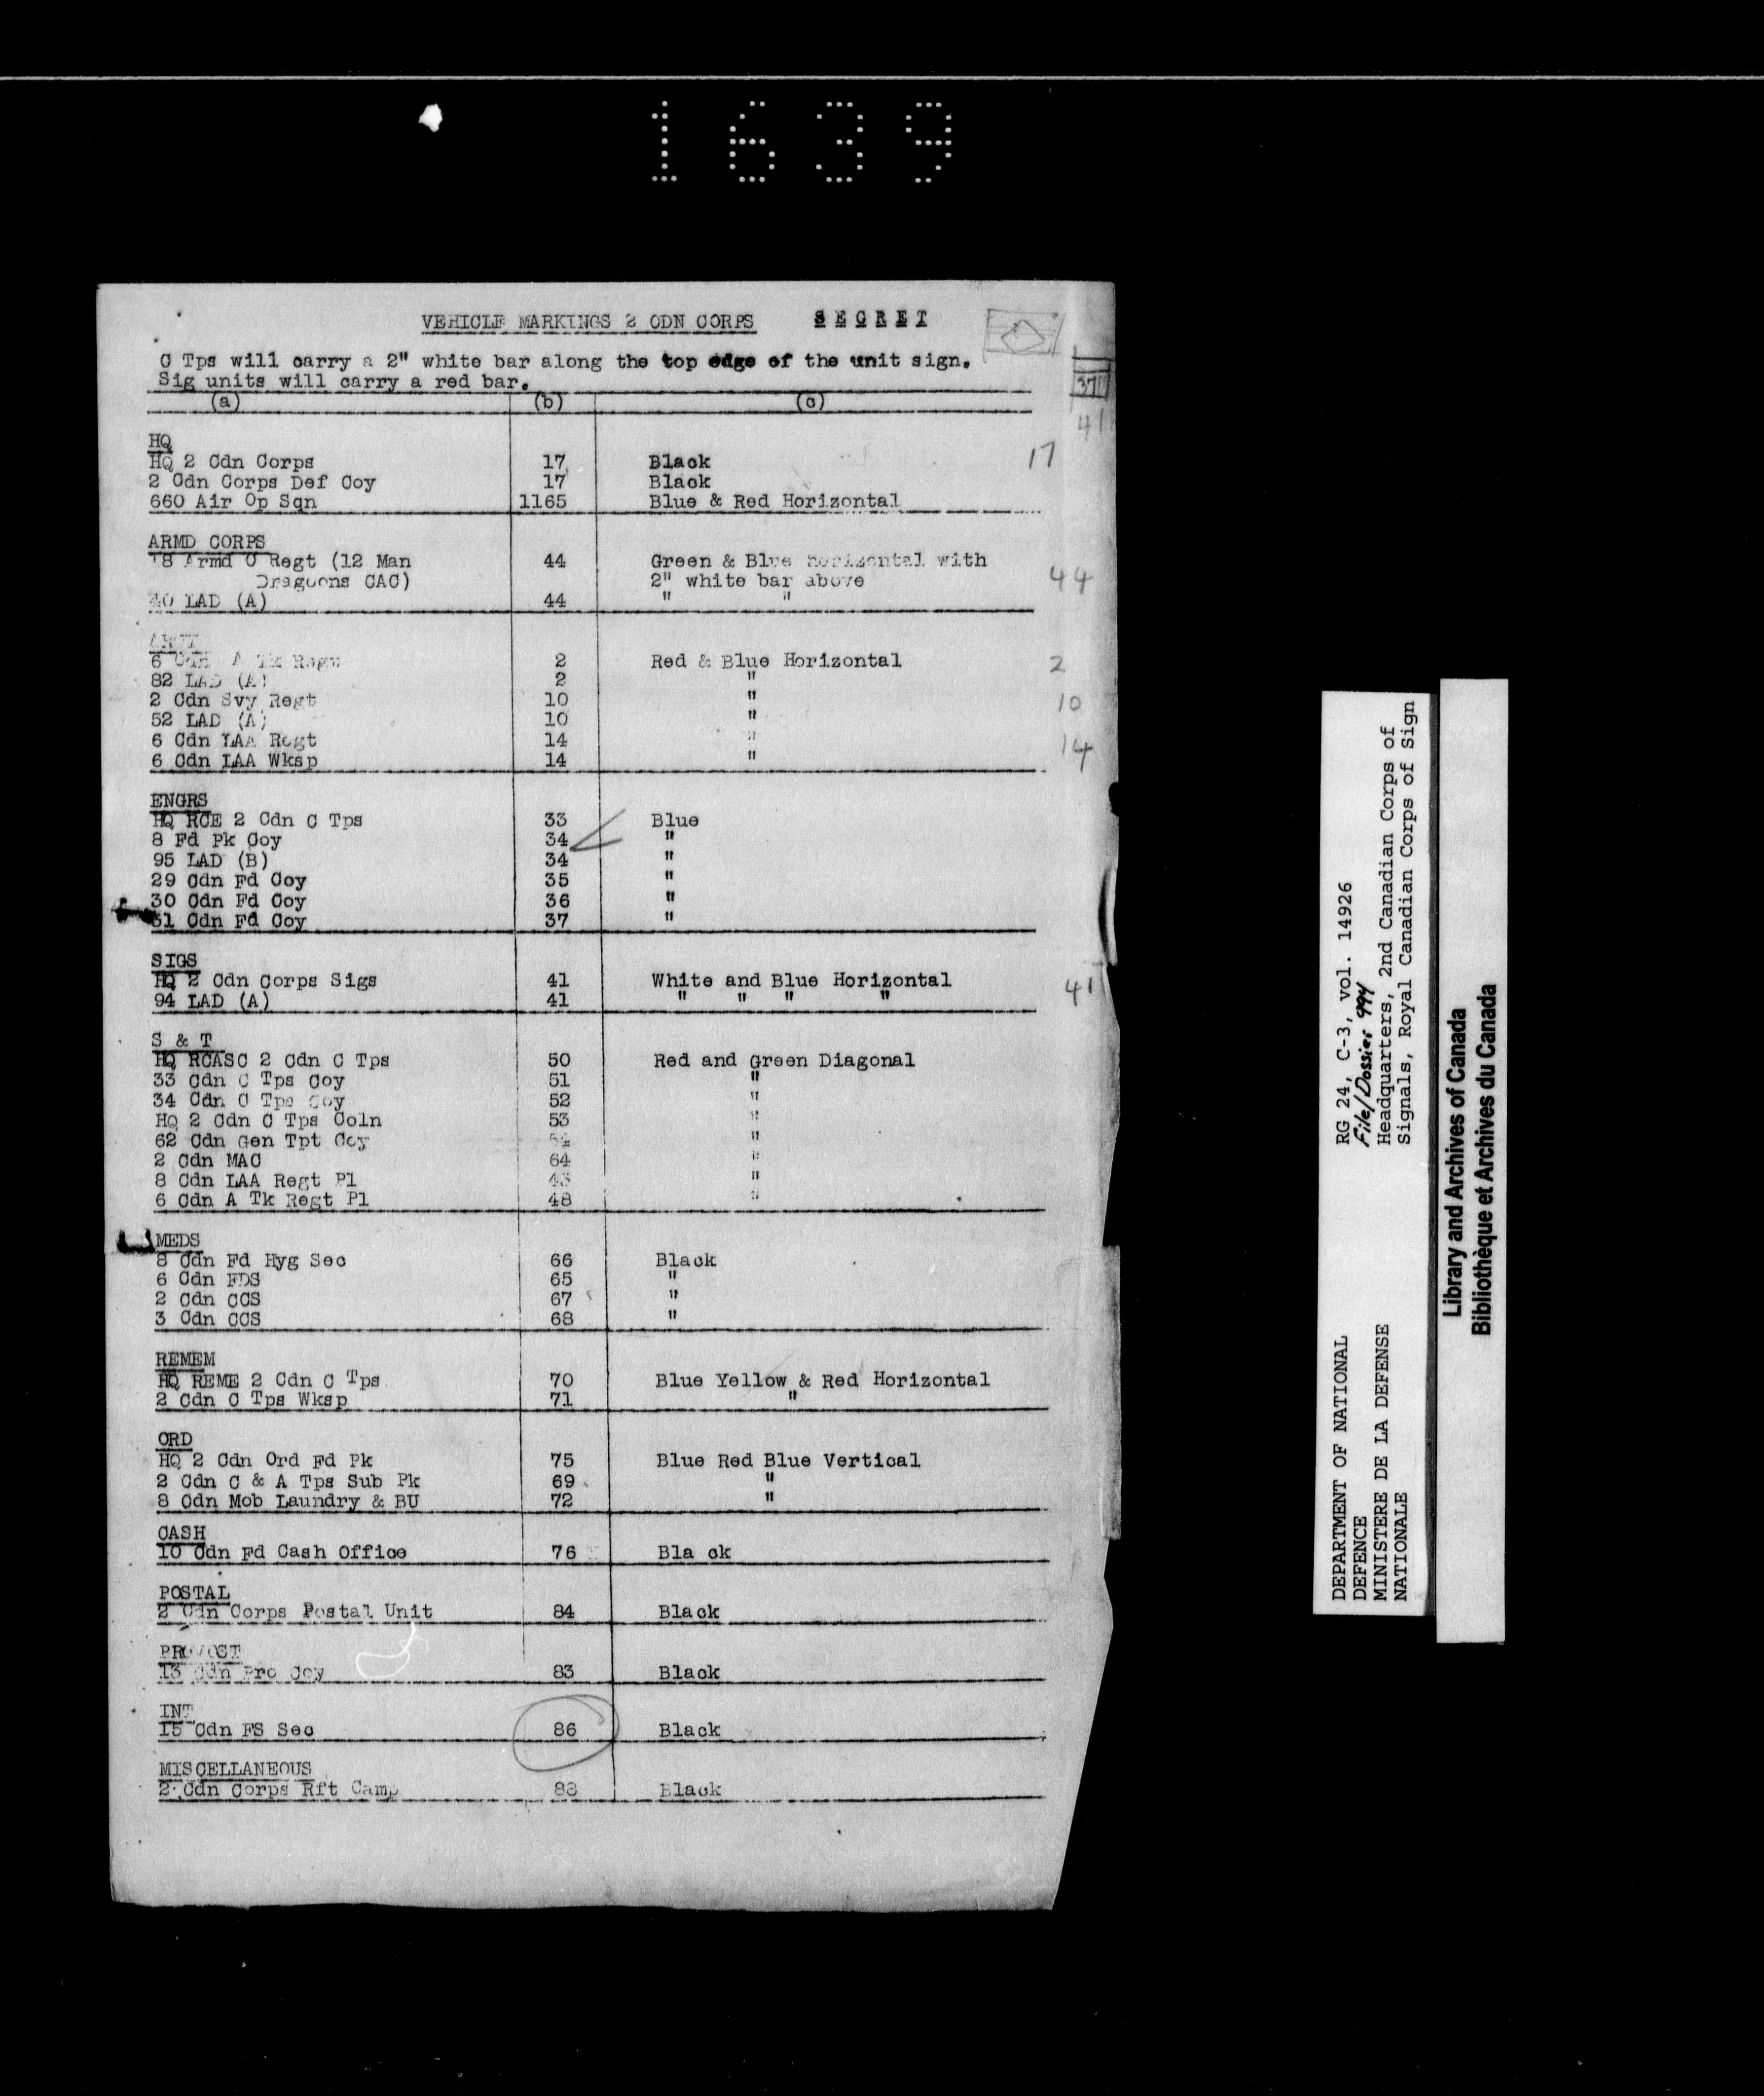 1639
VEHICLE MARKINGS 2 CDN CORPS SECRET
C Tps will carry a 2" white bar along the top edge of the unit sign.
Sig units will carry a red bar.
37
(a) (b) (c)
41
HQ
HQ 2 Cdn Corps 17 Black 17
2 Cdn Corps Def Coy 17 Black
660 Air Op Sqn 1165 Blue & Red Horizontal
ARMD CORPS
18 Armd C Regt (12 Man 44 Green & Blue horizontal with
Dragoons CAC) 2" white bar above 44
40 LAD (A) 44 " "
6 Cdn A Tk Regt 2 Red & Blue Horizontal 2
82 LAD (A) 2 "
2 Cdn Svy Regt 10 " 10
52 LAD (A) 10 "
6 Cdn LAA Regt 14 " 14
6 Cdn LAA Wksp 14 "
ENGRS
HQ RCE 2 Cdn C Tps 33 Blue
8 Fd Pk Coy 34 "
95 LAD (B) 34 "
29 Cdn Fd Coy 35 "
30 Cdn Fd Coy 36 "
31 Cdn Fd Coy 37 "
SIGS
HQ 2 Cdn Corps Sigs 41 White and Blue Horizontal 41
94 LAD (A) 41 " " " "
S & T
HQ RCASC 2 Cdn C Tps 50 Red and Green Diagonal
33 Cdn C Tps Coy 51 "
34 Cdn C Tps Coy 52 "
HQ 2 Cdn C Tps Coln 53 "
62 Cdn Gen Tpt Coy 54 "
2 Cdn MAC 64 "
8 Cdn LAA Regt Pl "
6 Cdn A Tk Regt Pl 48 "
MEDS
8 Cdn Fd Hyg Sec 66 Black
6 Cdn FDS 65 "
2 Cdn CCS 67 "
3 Cdn CCS 68 "
REMEM
HQ REME 2 Cdn C Tps 70 Blue Yellow & Red Horizontal
2 Cdn C Tps Wksp 71 "
ORD
HQ 2 Cdn Ord Fd Pk 75 Blue Red Blue Vertical
2 Cdn C & A Tps Sub Pk 69 "
8 Cdn Mob Laundry & BU 72 "
CASH
10 Cdn Fd Cash Office 76 Bla ck
POSTAL
2 Cdn Corps Postal Unit 84 Black
PROVOST
13 Cdn Pro Coy 83 Black
INT
15 Cdn FS Sec 86 Black
MISCELLANEOUS
2 Cdn Corps Rft Camp 88 Black
DEPARTMENT OF NATIONAL RG 24, C-3, vol. 14926
DEFENCE File/Dossier 994
MINISTERE DE LA DEFENSE Headquarters, 2nd Canadian Corps of
NATIONALE Signals, Royal Canadian Corps of Sign
Library and Archives of Canada
Bibliothèque et Archives du Canada